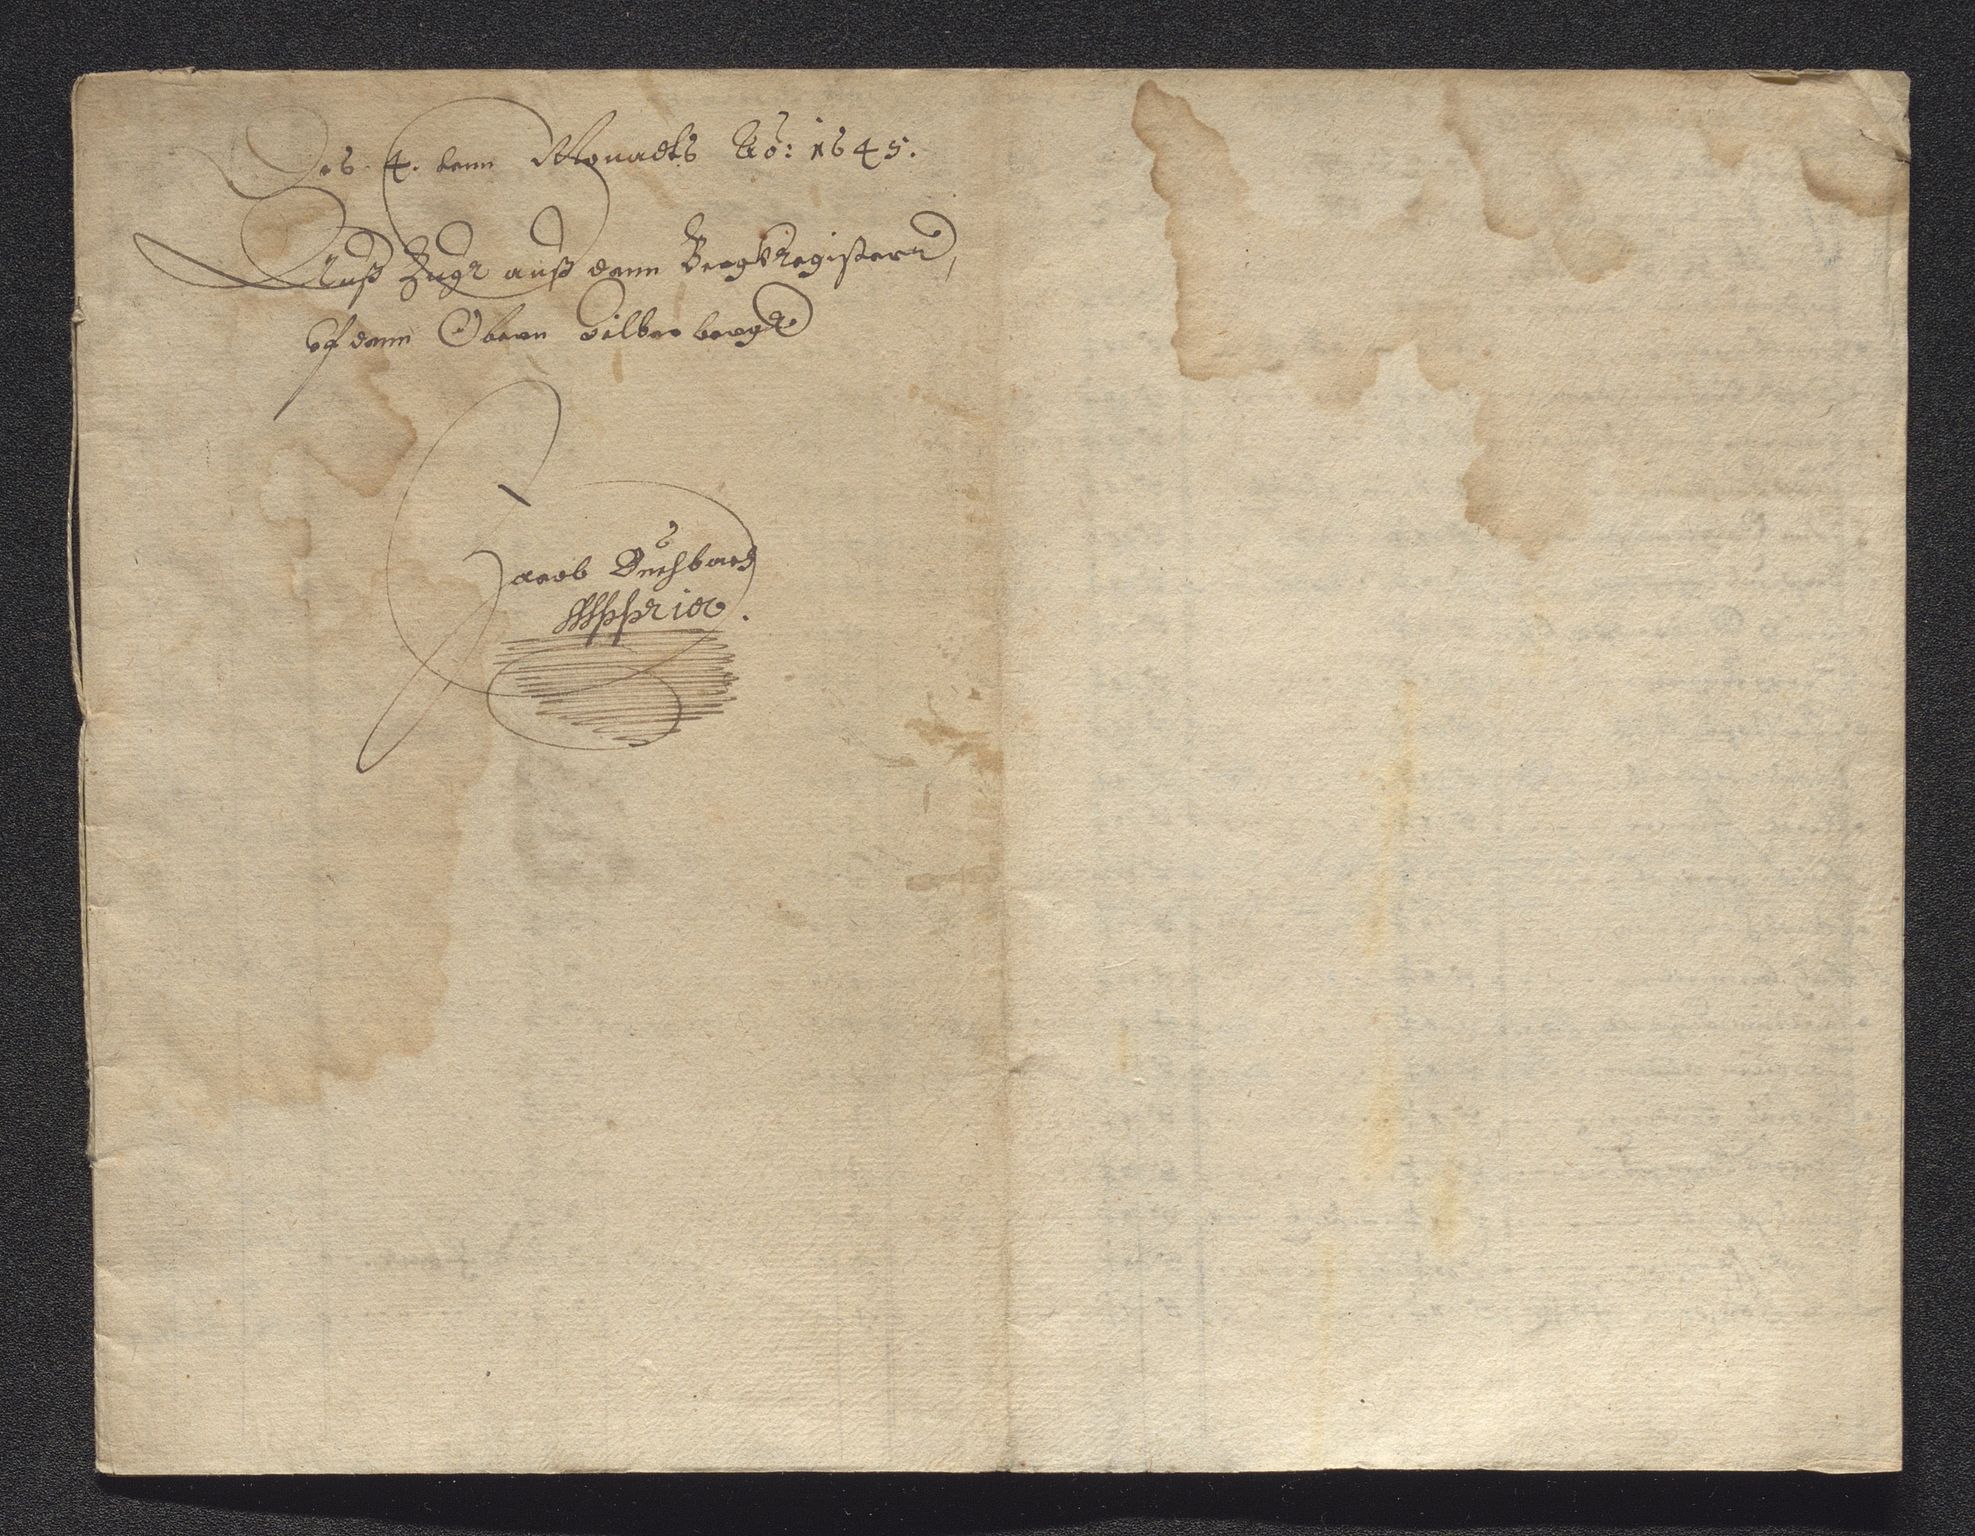 Des 4. tenn Monadts Ao: 1645.
Auß Zugk auß denn Bergk Registernn,
vf denn Obern silber bergk
Jacob Buchbach